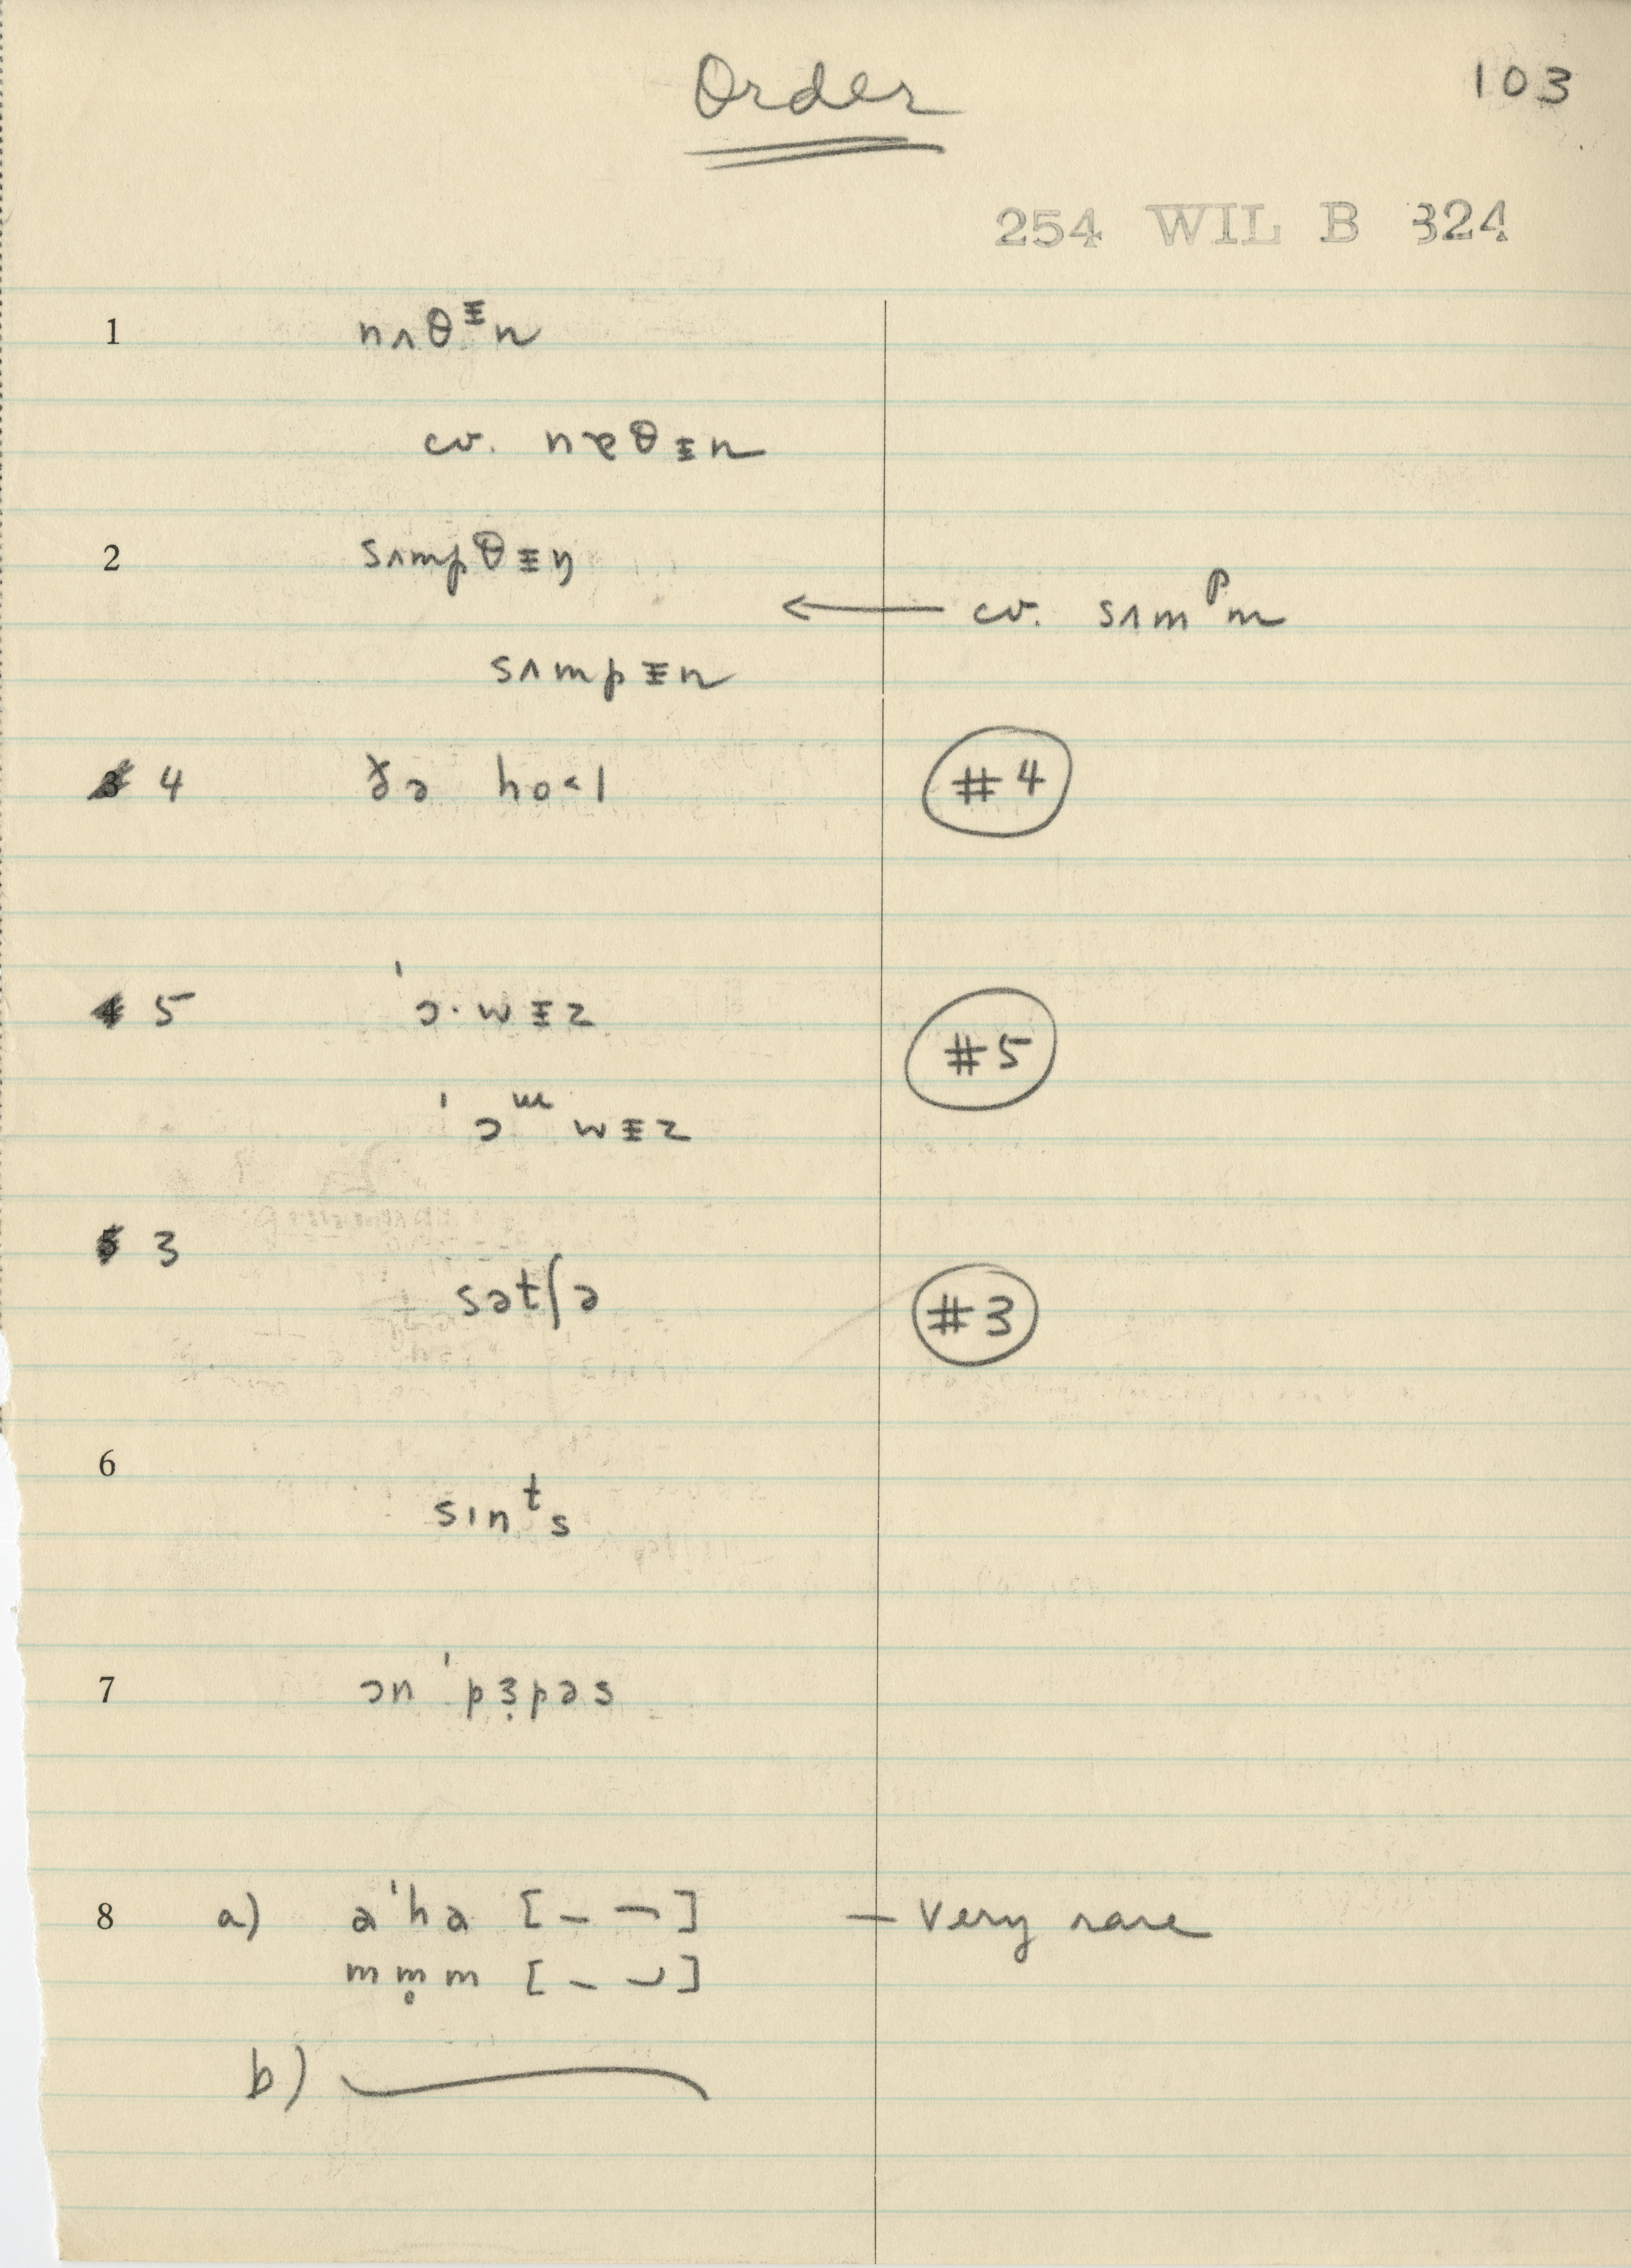 Order
103
254 WIL B 324
1 nʌθᵻn
cv. nɐθᵻn
2 sʌmpθᵻŋ
← cv. sʌmᵖm
sʌmpᵻn
4 ðə ho˂l #4
5 ˈɔ·wᵻz #5
ˈɔᵚwᵻz
3 sətʃə #3
6 sɪnᵗs
7 ɔn ˈpɜ̣pəs
8 a) əˈhə [– ¬] – very rare
mm̥m [– ⌣]
b)